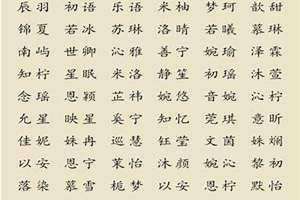 辰羽 初语 乐语 米柚 梦珂 歆甜
锦夏 若冰 苏琳 洛晴 若曦 慕琳
南屿 世卿 沁雅 善宁 婉瑜 泽霖
知柠 星眠 米洛 静笙 初瑶 沐萱
念瑶 恩颖 芷祎 婉悠 音婉 语柠
允星 映星 奚宁 知忆 莞琪 意昕
佳妮 姝冉 巡慧 钰莹 文茵 姝娴
以安 恩宁 茉怡 沐颜 婉沁 黎初
落染 慕雪 栀梦 以安 恩柠 默怡